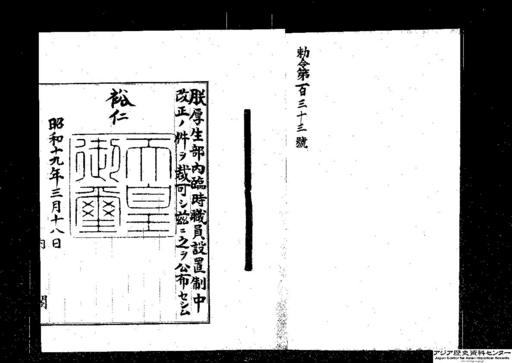 勅令第一百三十三號
朕厚生部內臨時職員設置制中
改正ノ件ヲ裁可シ茲ニ之ヲ公布セシム
裕仁
天皇御璽
昭和十九年三月十八日
內閣
アジア歴史資料センター
Japan Center for Asian Historical Records